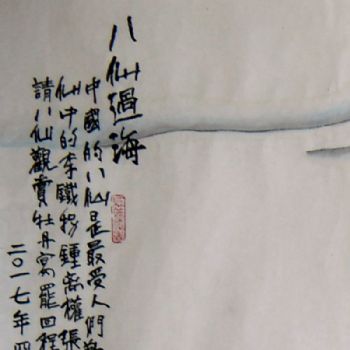 八仙過海
中國的八仙是最受人們
仙中的李鐵拐鍾离權張
請八仙觀賞牡丹宴罷回程
二〇一七年四